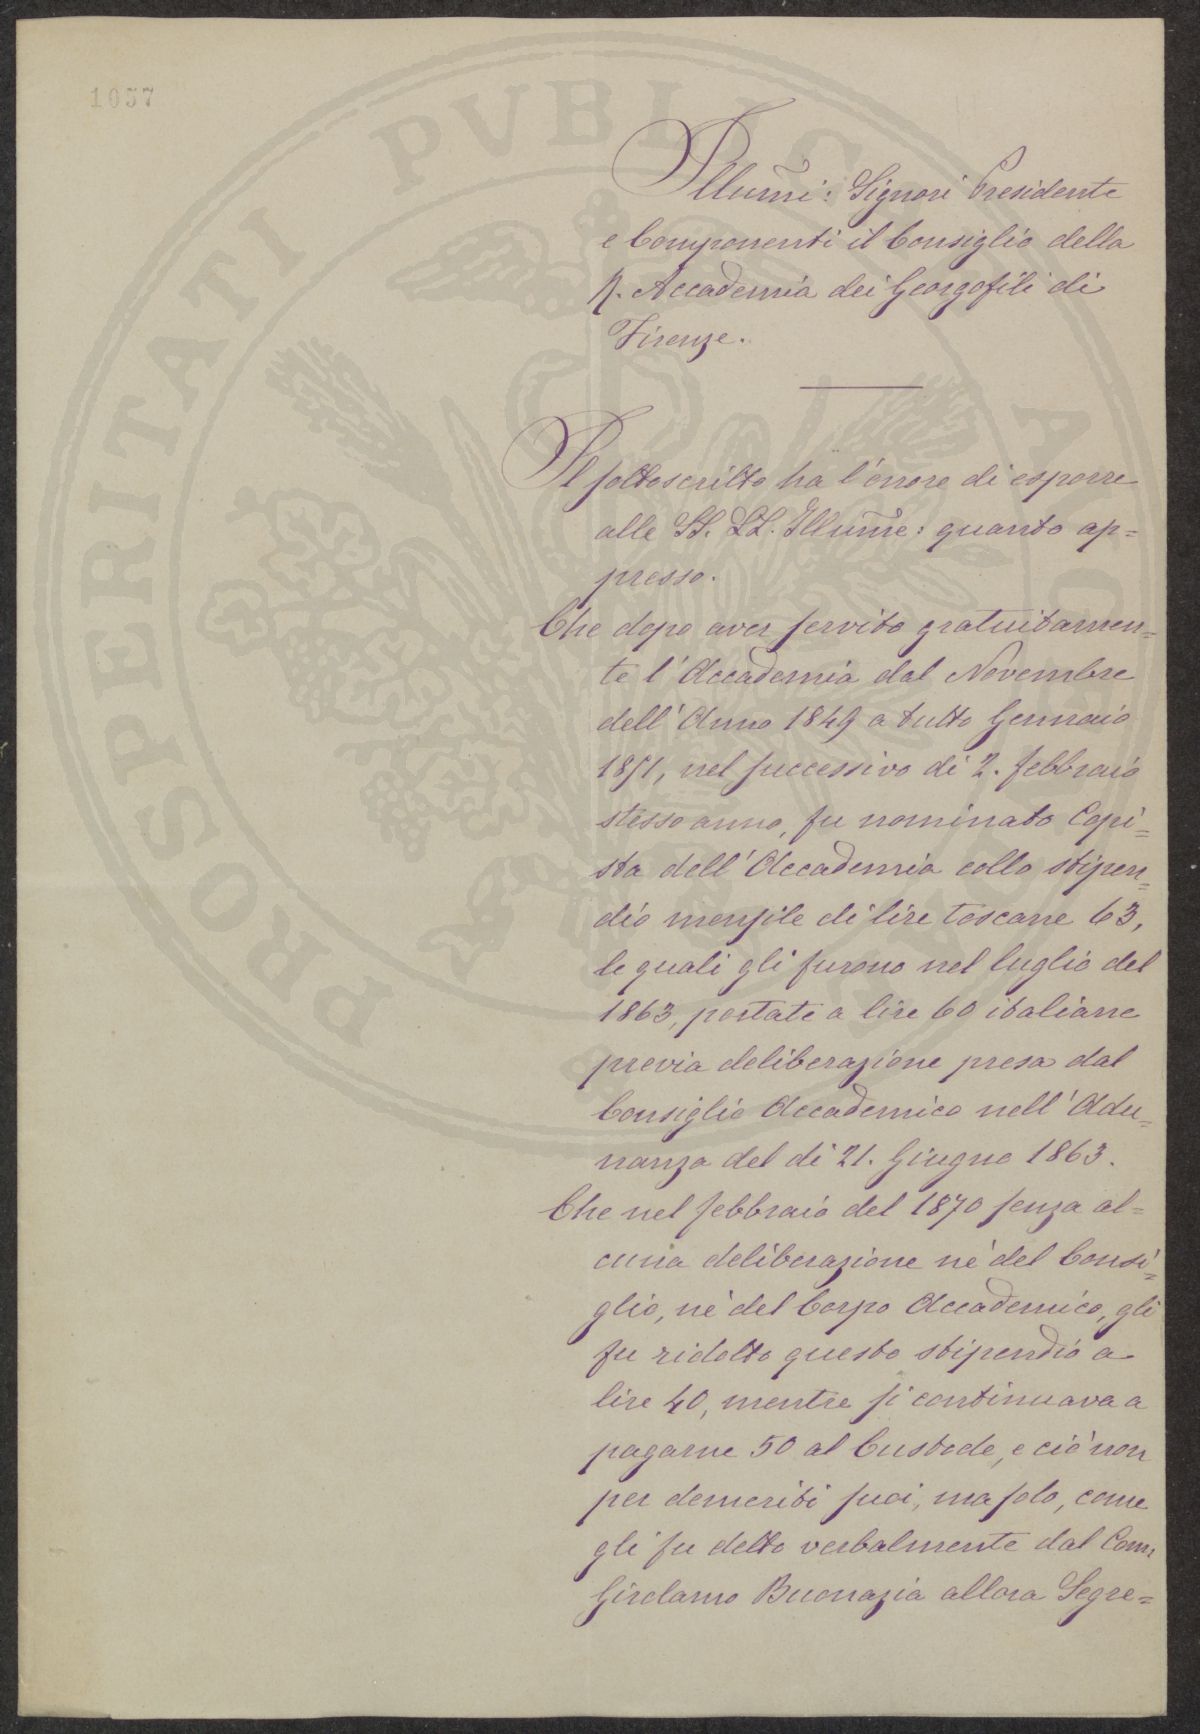 1057
PROSPERITATI PVBLICAE AVGENDAE
Illumi: Signori Presidente
e Componenti il Consiglio della
R. Accademia dei Georgofili di
Firenze.
Il sottoscritto ha l'onore di esporre
alle SS. LL. Illume: quanto ap=
presso.
Che dopo aver servito gratuitamen=
te l'Accademia dal Novembre
dell'Anno 1849 a tutto Gennaio
1851, nel successivo dì 2. febbraio
stesso anno, fu nominato Copi=
sta dell'Accademia collo stipen=
dio mensile di lire toscane 63,
le quali gli furono nel luglio del
1863, portate a lire 60 italiane
previa deliberazione presa dal
Consiglio Accademico nell'Adu=
nanza del dì 21. Giugno 1863.
Che nel febbraio del 1870 senza al=
cuna deliberazione nè del Consi=
glio, nè del Corpo Accademico, gli
fu ridotto questo stipendio a
lire 40, mentre si continuava a
pagarne 50 al Custode, e ciò non
per demeriti suoi, ma solo, come
gli fu detto verbalmente dal Com
Girolamo Buonazia allora Segre=